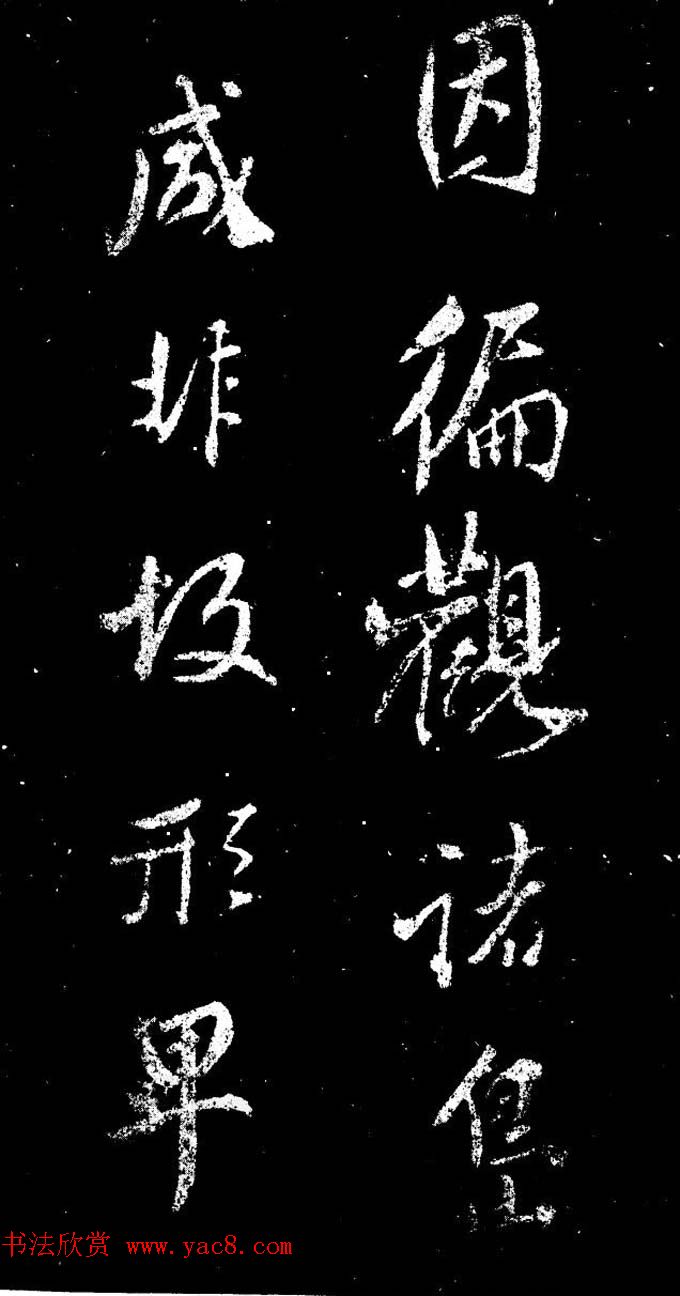 因徧觀諸
咸非形卑
书法欣赏 www.yac8.com